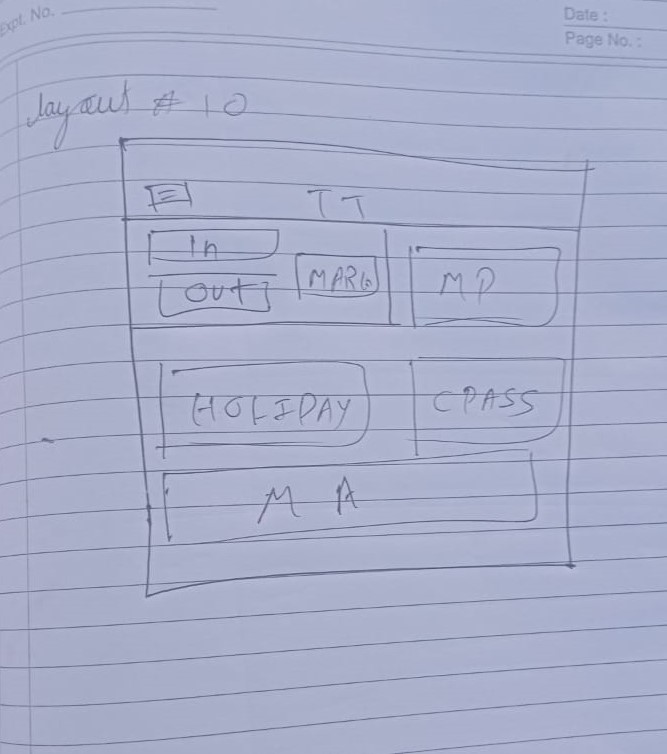 Expt. No.
Date :
Page No. :
layout # 10
TT
In
OUT
MARG
MP
HOLIDAY
CPASS
MA